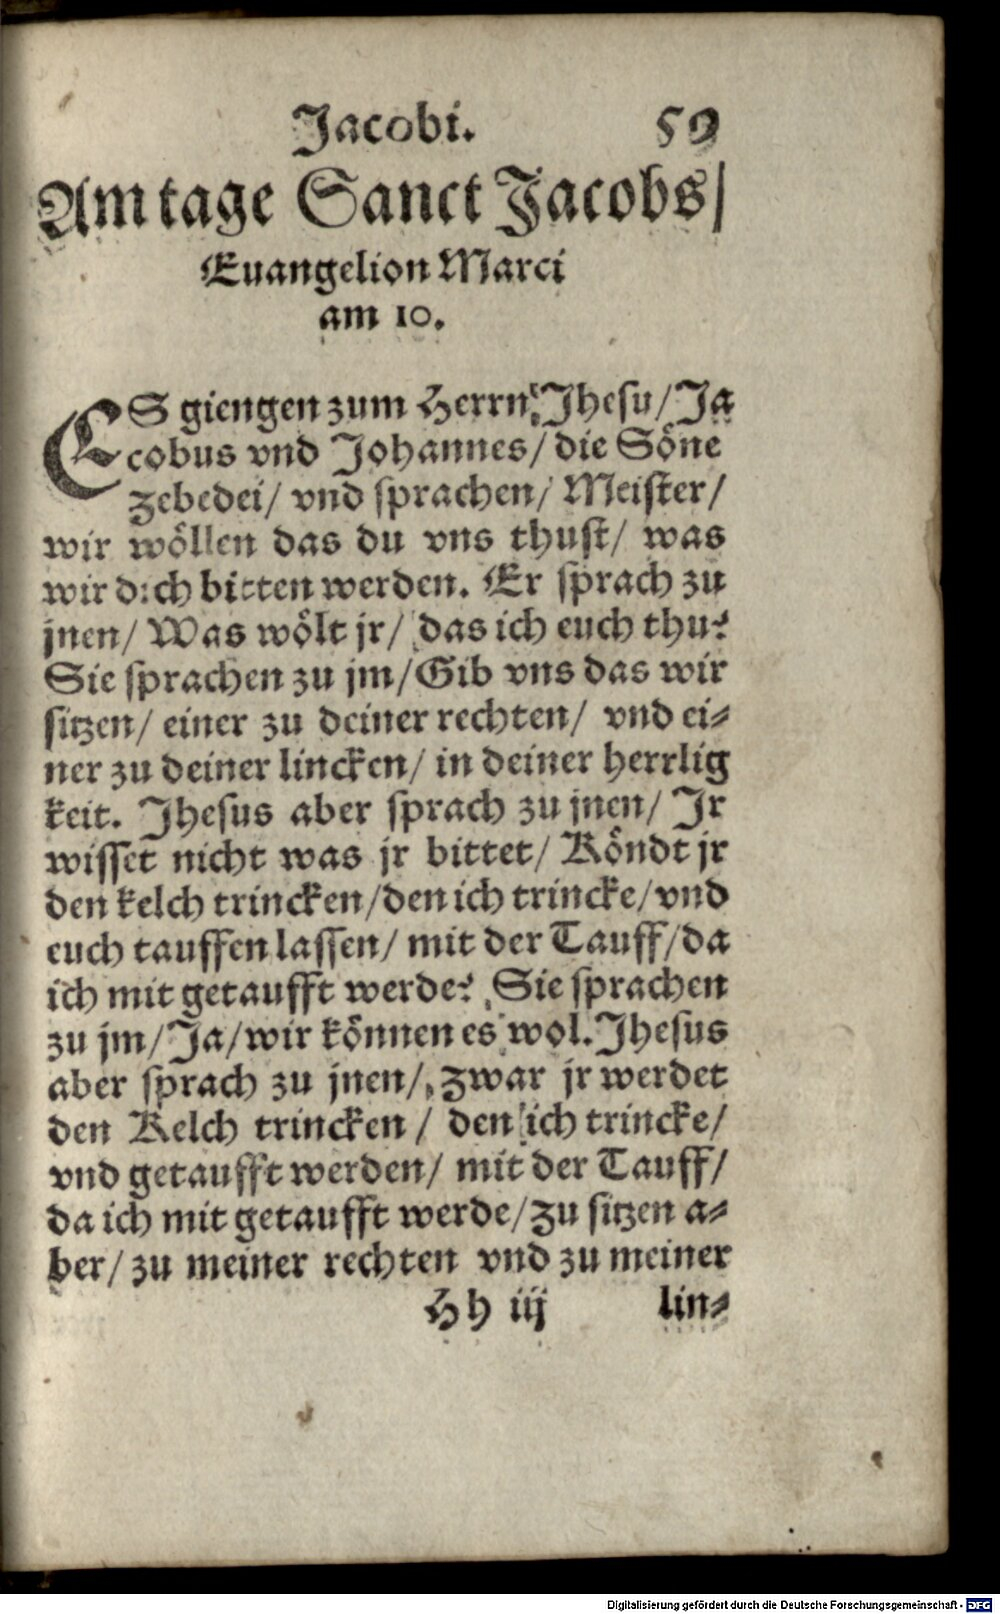 Jacobi. 59
Am tage Sanct Jacobs/
Euangelion Marci
am 10.
ES giengen zum Herrn Jhesu/ Ja
cobus vnd Johannes/ die Söne
Zebedei/ vnd sprachen/ Meister/
wir wöllen das du vns thust/ was
wir dich bitten werden. Er sprach zu
jnen/ Was wölt jr/ das ich euch thu?
Sie sprachen zu jm/ Gib vns das wir
sitzen/ einer zu deiner rechten/ vnd ei⸗
ner zu deiner lincken/ in deiner herrlig
keit. Jhesus aber sprach zu jnen/ Jr
wisset nicht was jr bittet/ Köndt jr
den kelch trincken/ den ich trincke/ vnd
euch tauffen lassen/ mit der Tauff/ da
ich mit getaufft werde? Sie sprachen
zu jm/ Ja/ wir können es wol. Jhesus
aber sprach zu jnen/ Zwar jr werdet
den Kelch trincken/ den ich trincke/
vnd getaufft werden/ mit der Tauff/
da ich mit getaufft werde/ Zu sitzen a⸗
ber/ zu meiner rechten vnd zu meiner
Hh iij lin⸗
Digitalisierung gefördert durch die Deutsche Forschungsgemeinschaft - DFG